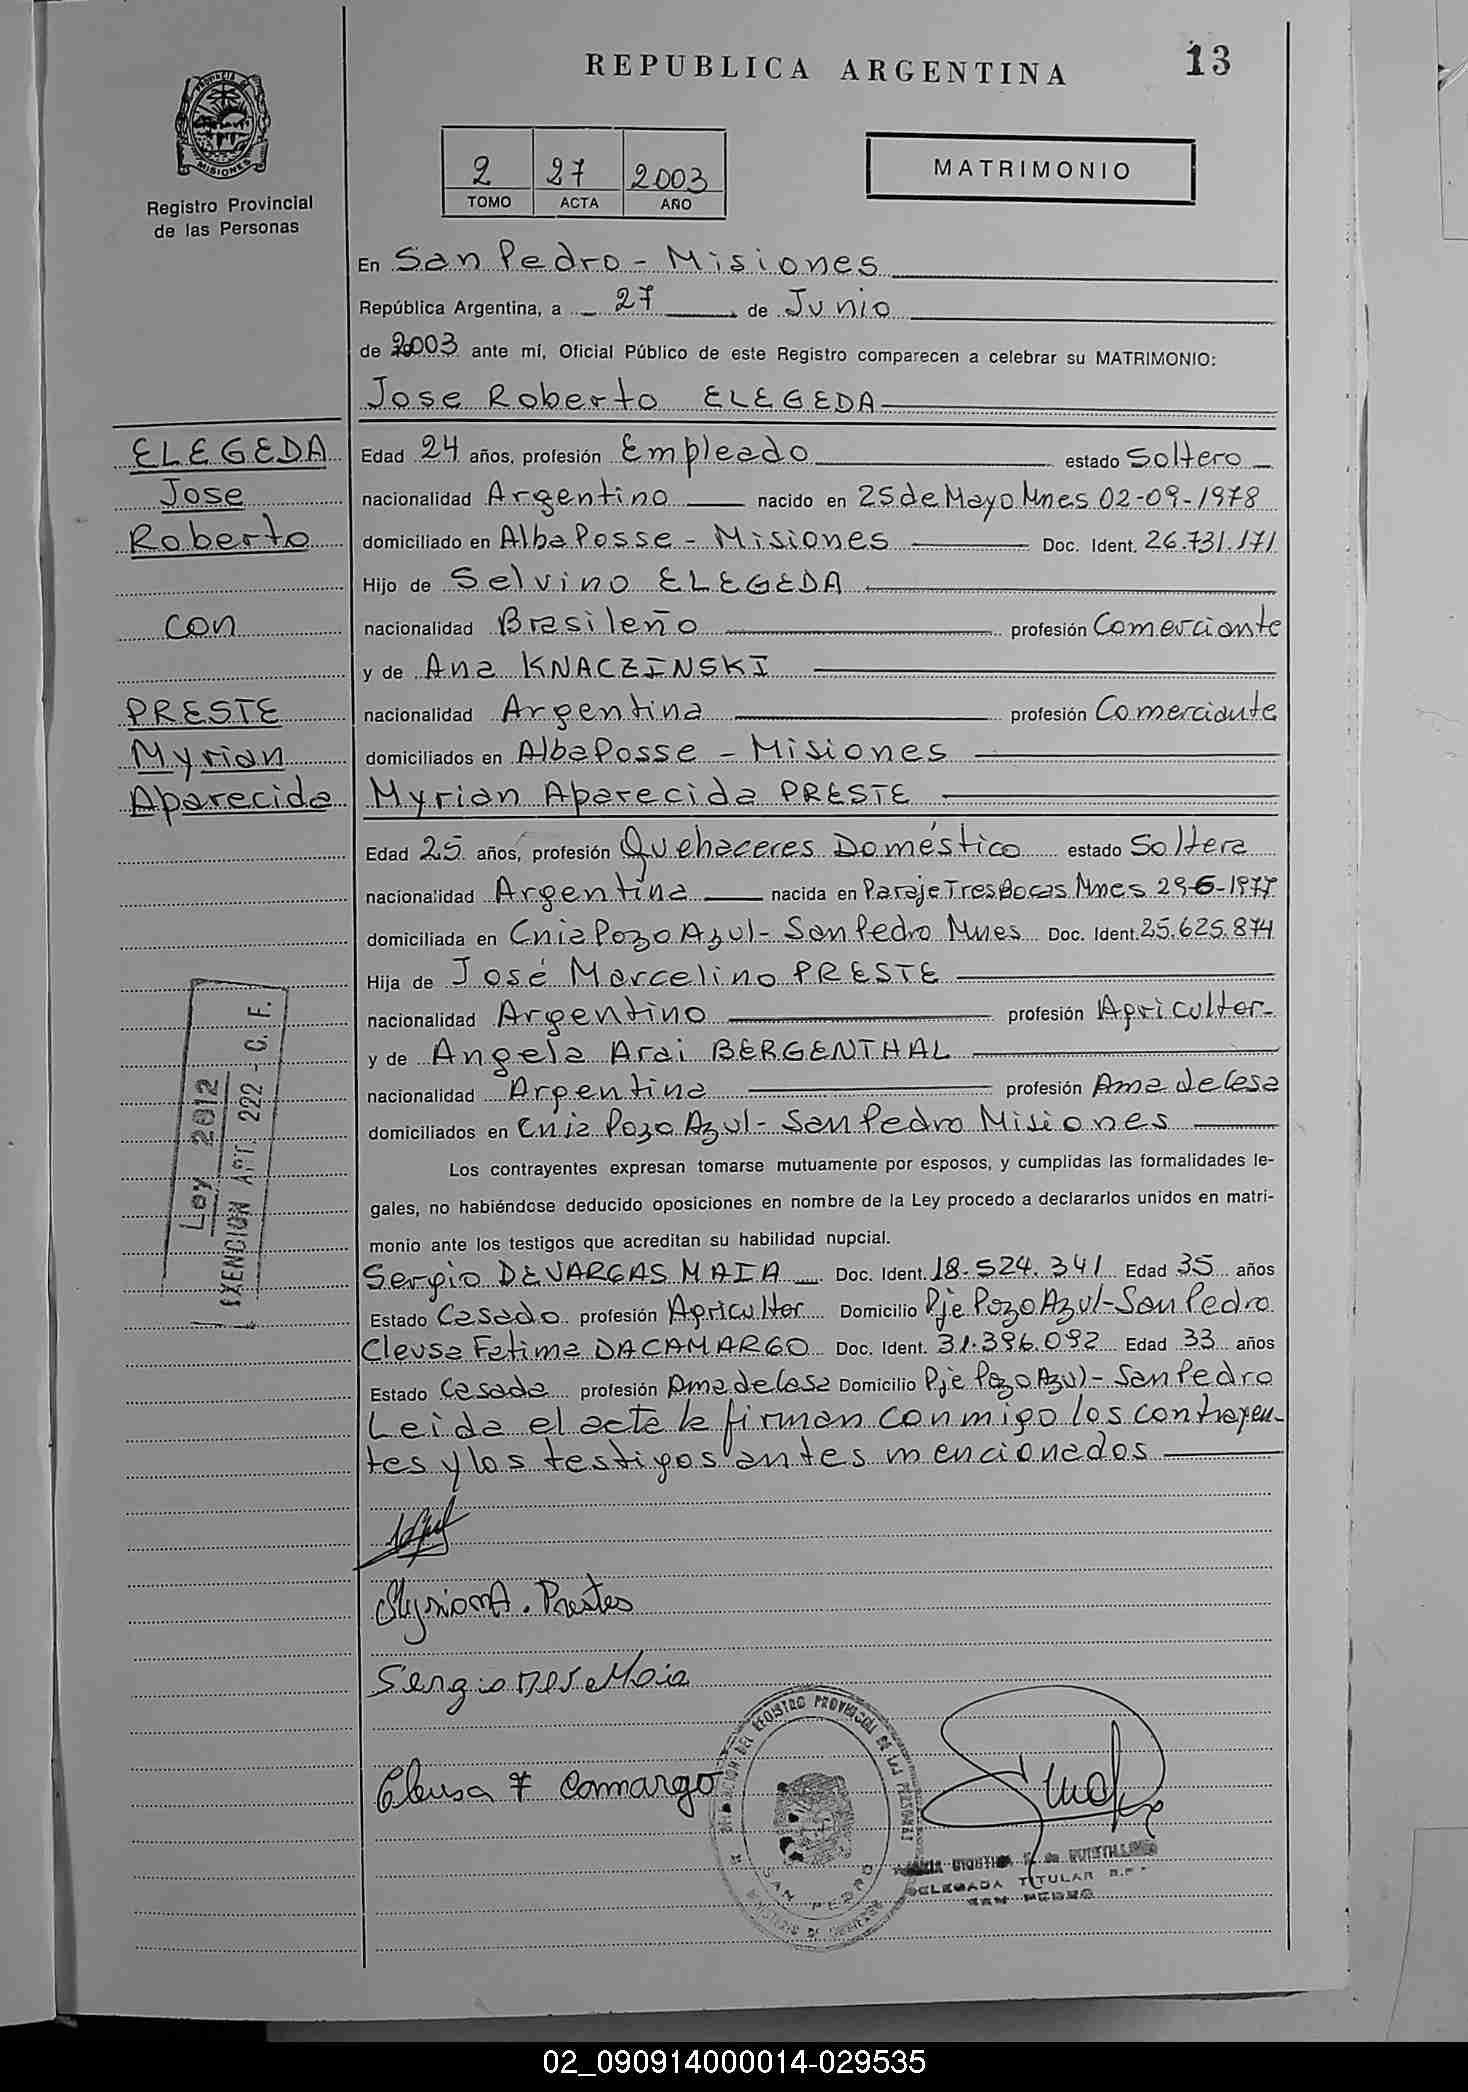 REPUBLICA ARGENTINA
13
PROVINCIA DE
MISIONES
Registro Provincial
de las Personas
2 27 2003
TOMO ACTA AÑO
MATRIMONIO
En San Pedro - Misiones
República Argentina, a 27 de Junio
de 2003 ante mí, Oficial Público de este Registro comparecen a celebrar su MATRIMONIO:
Jose Roberto ELEGEDA
ELEGEDA
Jose
Roberto
con
PRESTE
Myrian
Aparecida
Edad 24 años, profesión Empleado estado Soltero
nacionalidad Argentino nacido en 25 de Mayo Mnes 02-09-1978
domiciliado en Alba Posse - Misiones Doc. Ident. 26.731.171
Hijo de Selvino ELEGEDA
nacionalidad Brasileño profesión Comerciante
y de Ana KNACZINSKI
nacionalidad Argentina profesión Comerciante
domiciliados en Alba Posse - Misiones
Myrian Aparecida PRESTE
Edad 25 años, profesión Quehaceres Doméstico estado Soltera
nacionalidad Argentina nacida en Paraje Tres Bocas Mnes 29-6-1977
domiciliada en Cnia Pozo Azul - San Pedro Mnes Doc. Ident. 25.625.874
Hija de José Marcelino PRESTE
nacionalidad Argentino profesión Agricultor
y de Angela Arai BERGENTHAL
nacionalidad Argentina profesión Ama de Casa
domiciliados en Cnia Pozo Azul - San Pedro Misiones
Ley 2812
EXENCION ART. 222 - C. F.
Los contrayentes expresan tomarse mutuamente por esposos, y cumplidas las formalidades le-
gales, no habiéndose deducido oposiciones en nombre de la Ley procedo a declararlos unidos en matri-
monio ante los testigos que acreditan su habilidad nupcial.
Sergio DE VARGAS MAIA Doc. Ident. 18.524.341 Edad 35 años
Estado Casado profesión Agricultor Domicilio Pje Pozo Azul - San Pedro
Cleusa Fatima DA CAMARGO Doc. Ident. 31.396.092 Edad 33 años
Estado Casada profesión Ama de Casa Domicilio Pje Pozo Azul - San Pedro
Leida el acta la firman conmigo los contrayen-
tes y los testigos antes mencionados
Myrian A. Prestes
Sergio Maia
Cleusa F Camargo
DEL REGISTRO PROVINCIAL DE LAS PERSONAS
SAN PEDRO
DELEGADA TITULAR
SAN PEDRO
02_090914000014-029535